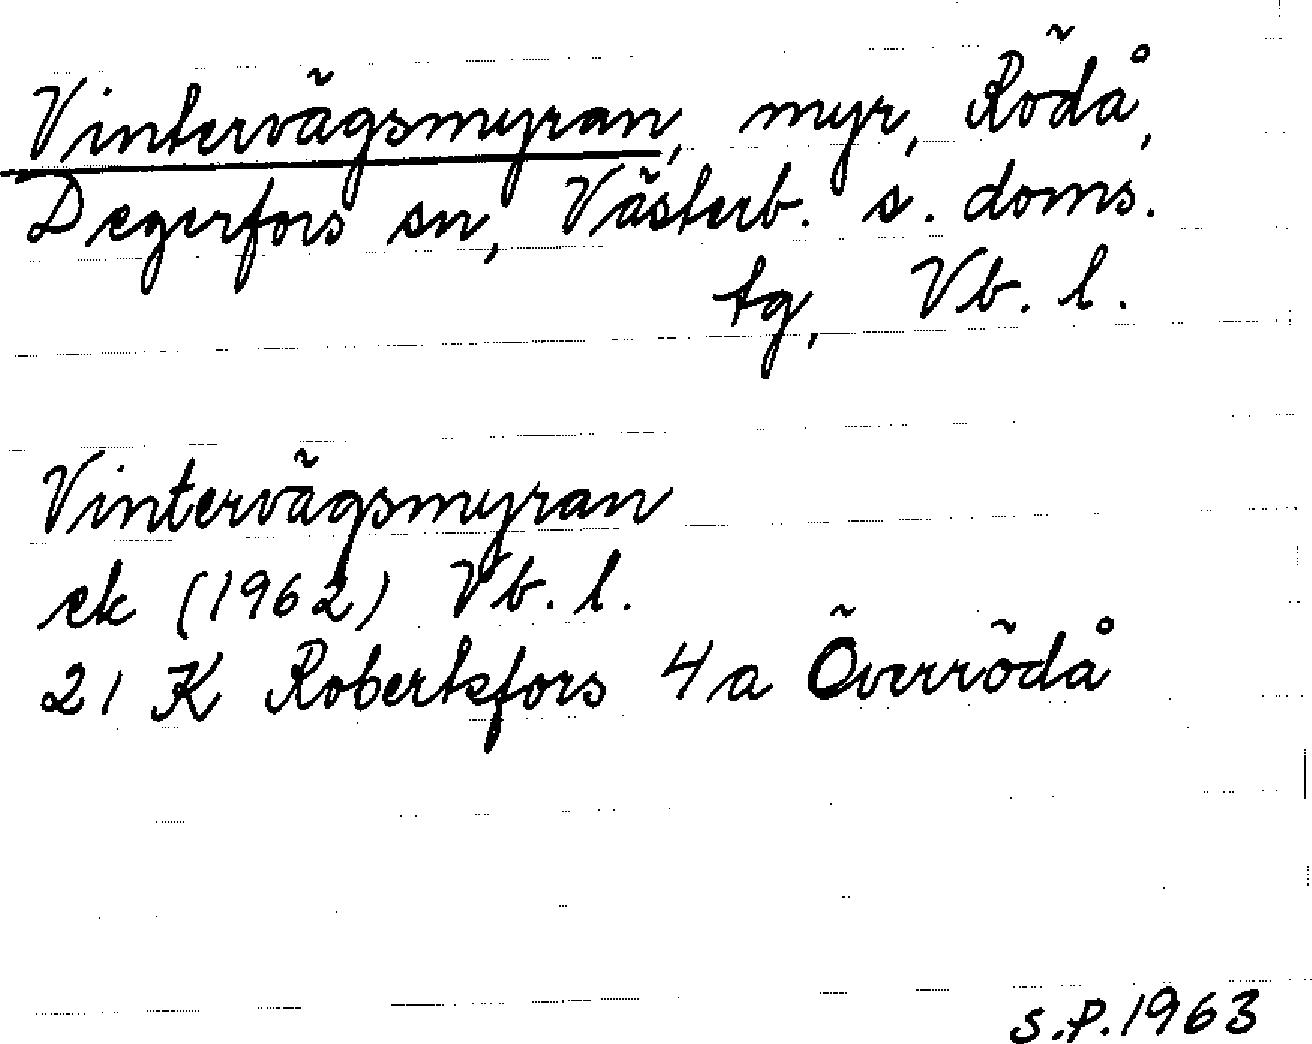 Vintervägsmyran, myr, Rödå,
Degerfors sn, Västerb. s. doms.
tg, Vb. l.
Vintervägsmyran
ek (1962) Vb. l.
21 K Robertsfors 4a Överrödå
S.P. 1963